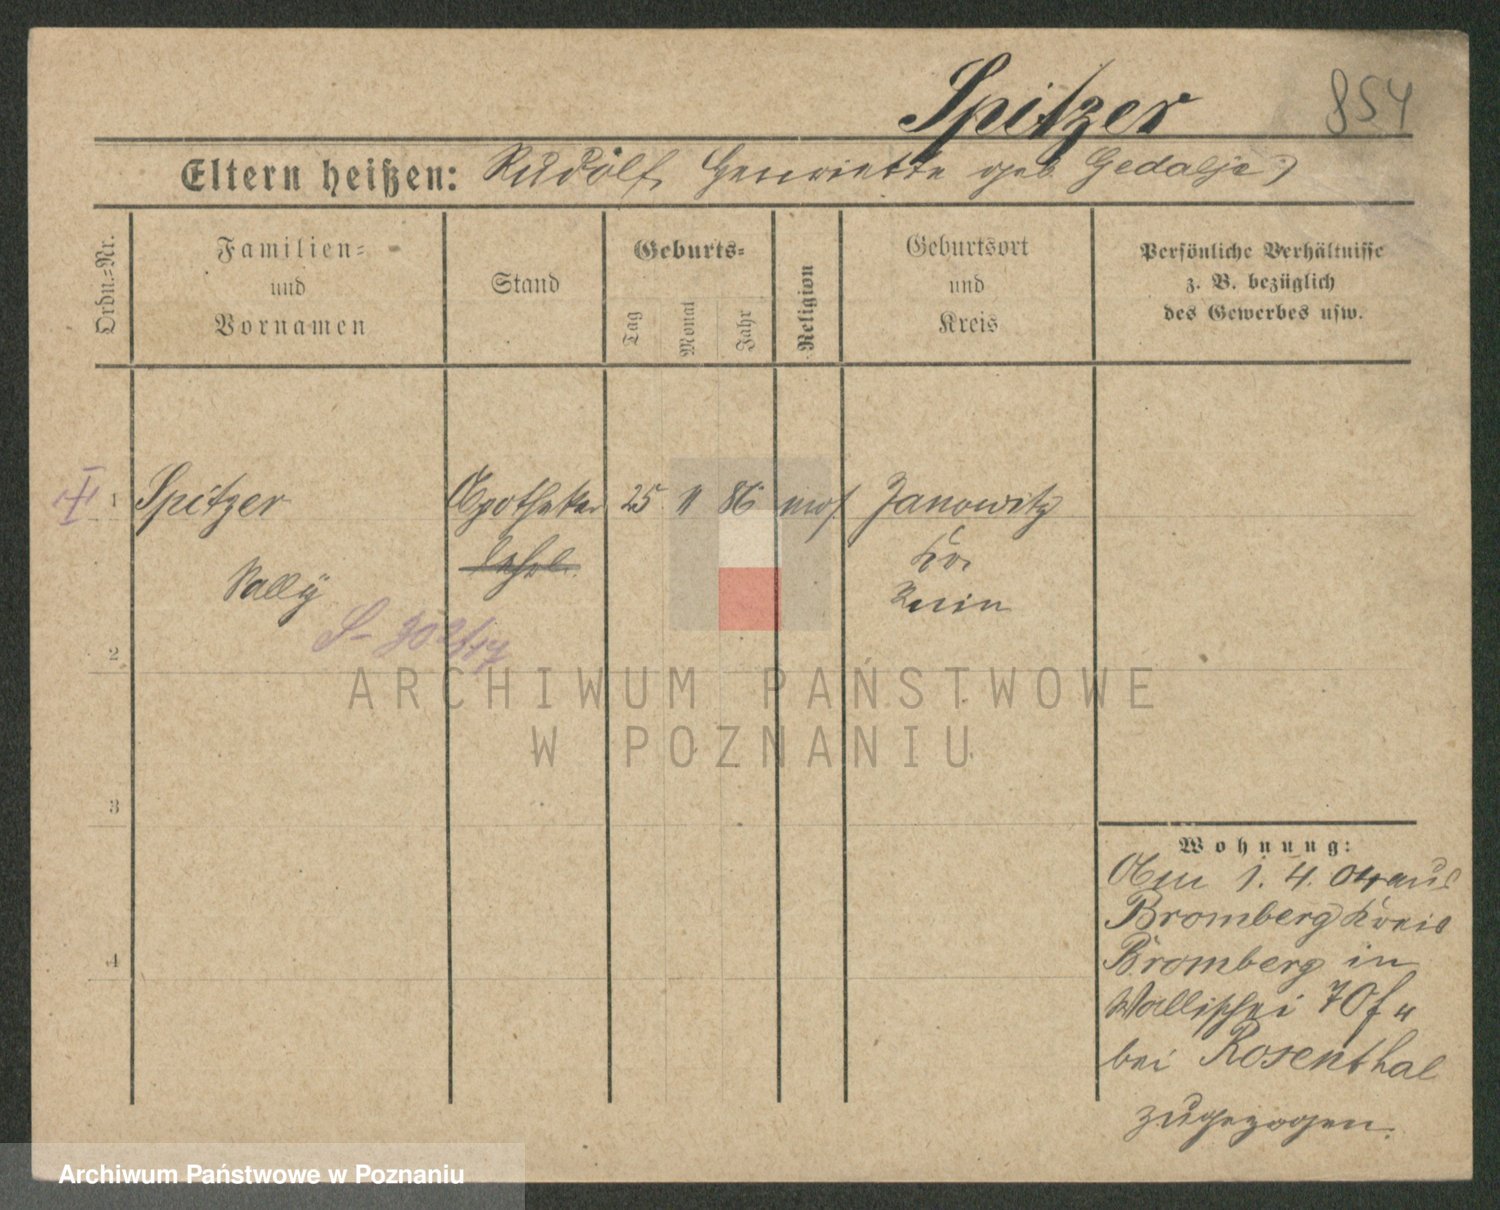 Spitzer
854
Eltern heißen: Rudolf, Henriette geb Gedalje
Ordn.=Nr.
Familien=
und
Vornamen
Stand
Geburts=
Tag
Monat
Jahr
Religion
Geburtsort
und
Kreis
Persönliche Verhältnisse
z. B. bezüglich
des Gewerbes usw.
1 Spitzer Apotheker 25 11 86 mos. Janowitz
lehrl. Kr.
Sally Znin
2
ARCHIWUM PAŃSTWOWE
W POZNANIU
3
4
Wohnung:
Am 1. 4. 04 aus
Bromberg Kreis
Bromberg in
Wallischei 70
bei Rosenthal
zugezogen.
Archiwum Państwowe w Poznaniu